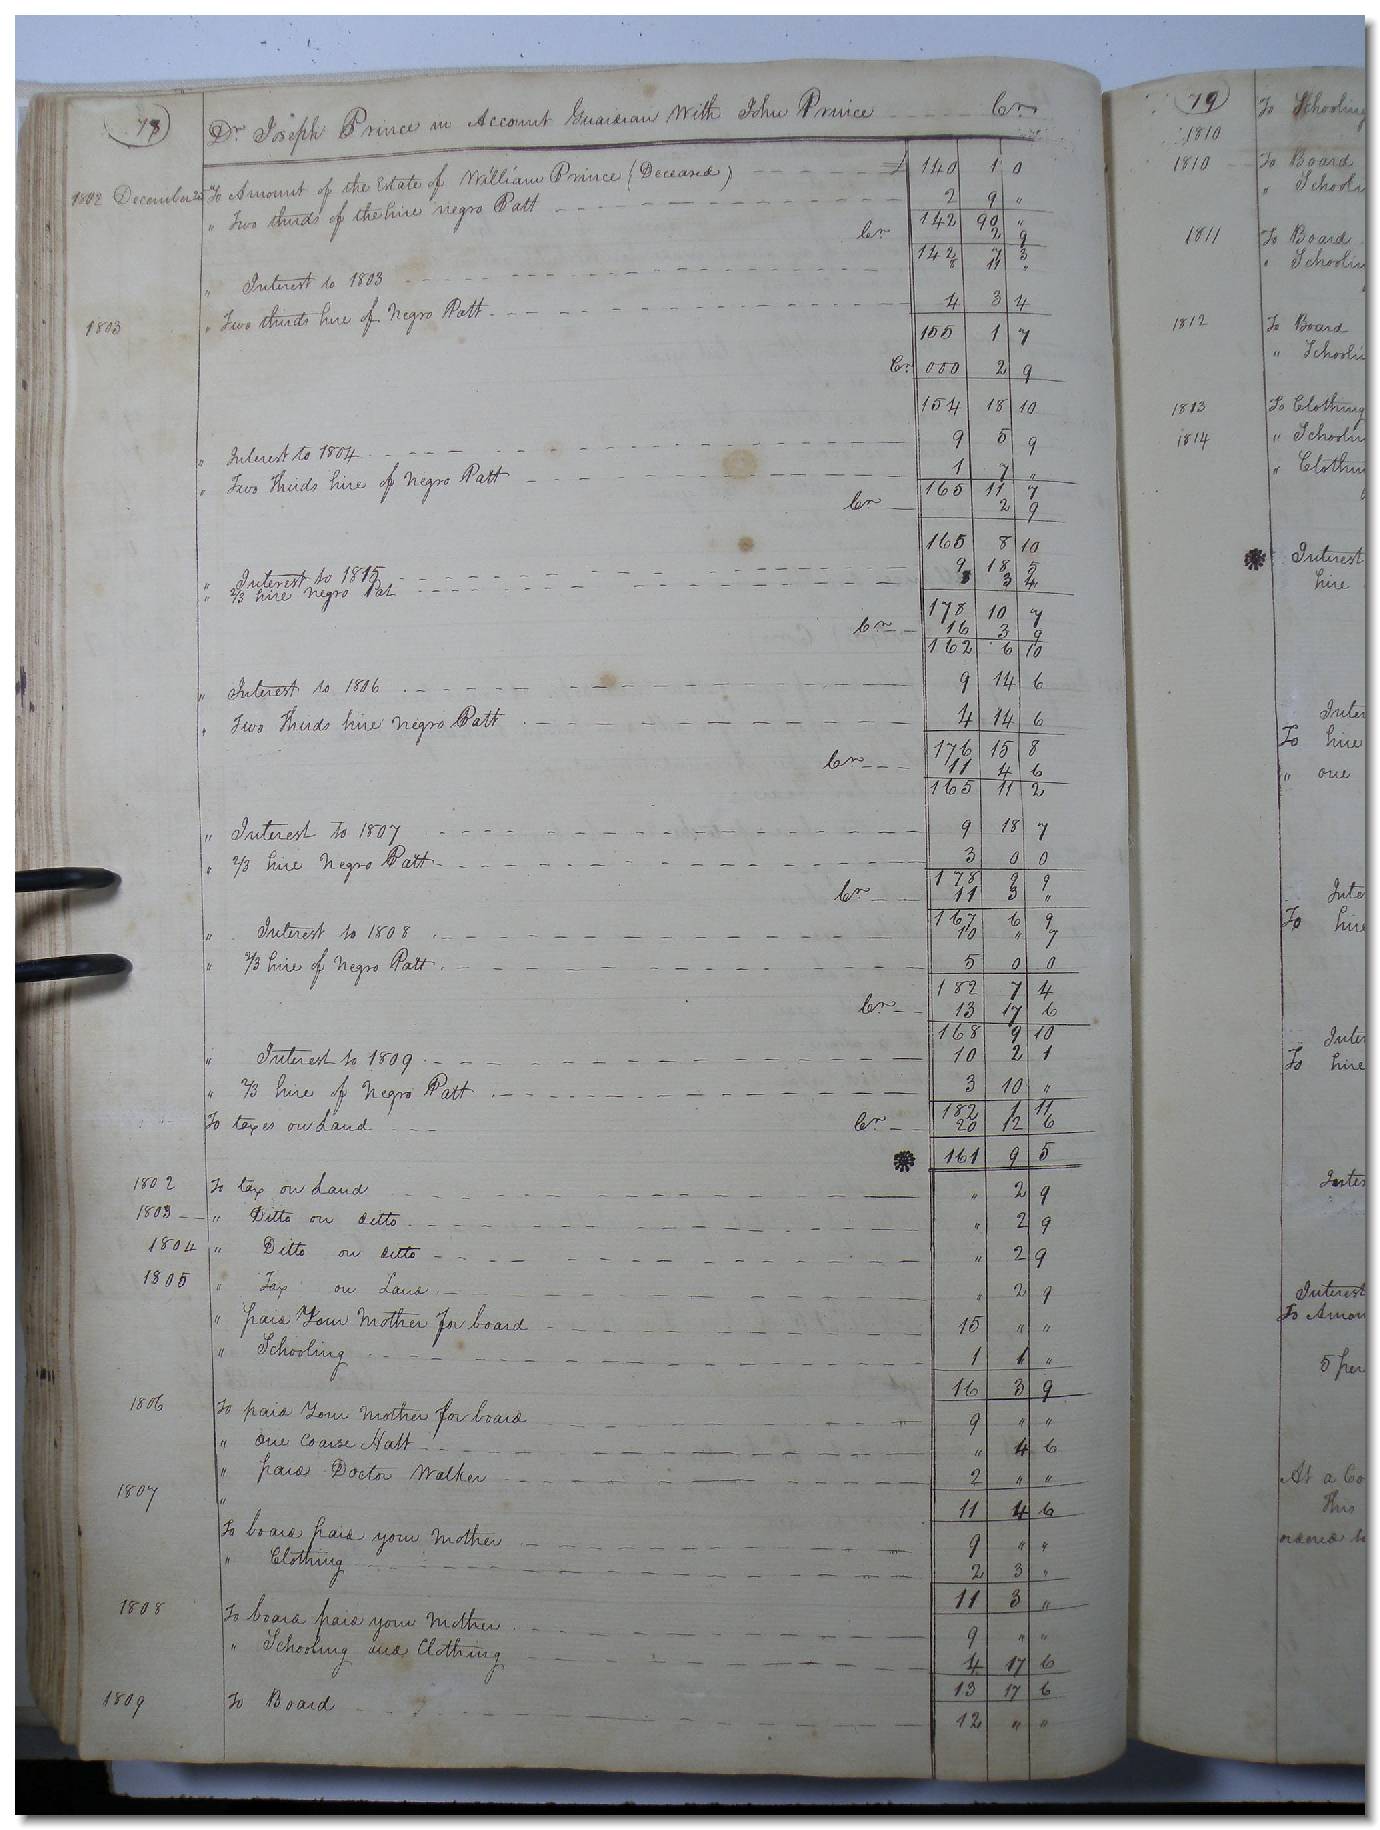 78
Dr Joseph Prince in Account Guardian With John Prince Cr
1802 December 25 To Amount of the Estate of William Prince (Deceased) £ 140 1 0
" Two thirds of the hire negro Patt 2 9 "
142 90 "
Cr 2 9
142 7 3
" Interest to 1803 8 11 "
1803 " Two thirds hire of Negro Patt 4 3 4
155 1 7
Cr 000 2 9
154 18 10
" Interest to 1804 9 5 9
" Two Thirds hire of Negro Patt 1 7 "
165 11 7
Cr 2 9
165 8 10
" Interest to 1815 9 18 5
" 2/3 hire negro Pat 3 3 4
178 10 7
Cr 16 3 9
162 6 10
" Interest to 1806 9 14 6
" Two Thirds hire Negro Patt 4 14 6
176 15 8
Cr 11 4 6
165 11 2
" Interest to 1807 9 18 7
" 2/3 hire Negro Patt 3 0 0
178 9 9
Cr 11 3 "
167 6 9
" Interest to 1808 10 " 7
" 2/3 hire of Negro Patt 5 0 0
182 7 4
Cr 13 17 6
168 9 10
" Interest to 1809 10 2 1
" 2/3 hire of Negro Patt 3 10 "
182 1 11
To taxes on Land Cr 20 12 6
161 9 5
1802 To tax on Land " 2 9
1803 " Ditto on ditto " 2 9
1804 " Ditto on ditto " 2 9
1805 " Tax on Land " 2 9
" paid Your Mother for board 15 " "
" Schooling 1 1 "
16 3 9
1806 To paid Your Mother for board 9 " "
" one Coarse Hatt " 4 6
" paid Doctor Walker 2 " "
1807 " 11 4 6
To board paid your Mother 9 " "
" Clothing 2 3 "
11 3 "
1808 To board paid your Mother 9 " "
" Schooling and Clothing 4 17 6
13 17 6
1809 To Board 12 " "
79
To Schooling
1810
1810 To Board
"
1811 To Board
"
1812 To Board
"
1813 To Clothing
1814 "
"
Interest
hire
To hire
" one
To
To hire
Interest
To
5
At a
this